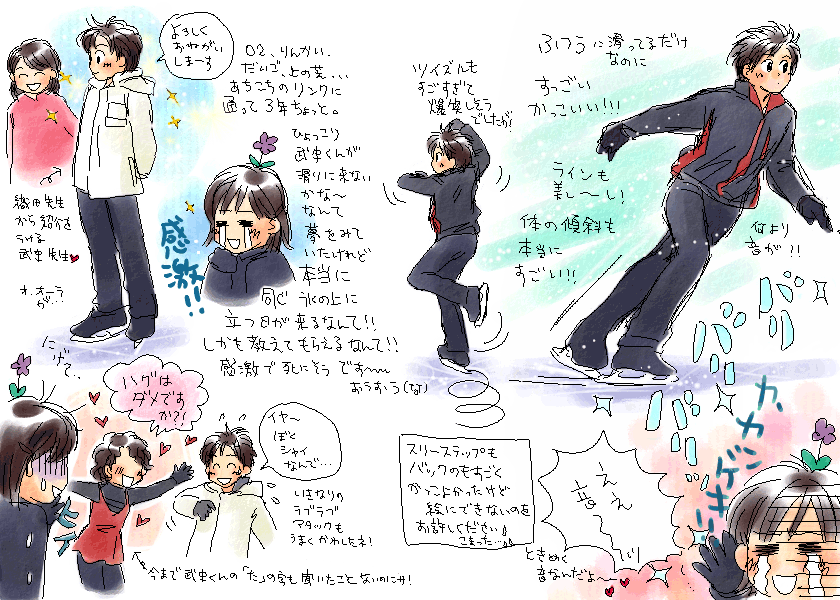 よろしく
おねがい
しまーす
織田先生
から紹介を
うける
武史先生
オ、オーラ
が…
02、りんかい、
だいご、上の芝、...
あちこちのリンクに
通って3年ちょっと。
ひょっこり
武史くんが
滑りに来ない
かな〜
なんて
夢をみて
いたけれど
本当に
同じ氷の上に
立つ日が来るなんて!!
しかも教えてもらえるなんて!!
感激で死にそうです〜
あうすう(な)
感激!!
ツイズルも
すごすぎて
爆笑しそう
でしたが!
ふつうに滑ってるだけ
なのに
すっごい
かっこいい!!!
ラインも
美し〜い!
体の傾斜も
本当に
すごい!!
何より
音が?!
バリ
バリ
バリバリ
カ、カンゲキ!!
にげて..
ヒイ
ハグは
ダメです
か?!
イヤ〜
ぼく
シャイ
なんで…
いきなりの
ラブラブ
アタックも
うまくかわしたネ!
今まで武史くんの「た」の字も聞いたことないのにサ!
スリーステップも
バックのもすごく
かっこよかったけど
絵にできないのを
お許しください
こまった…
ええ
音〜
ときめく
音なんだよ〜